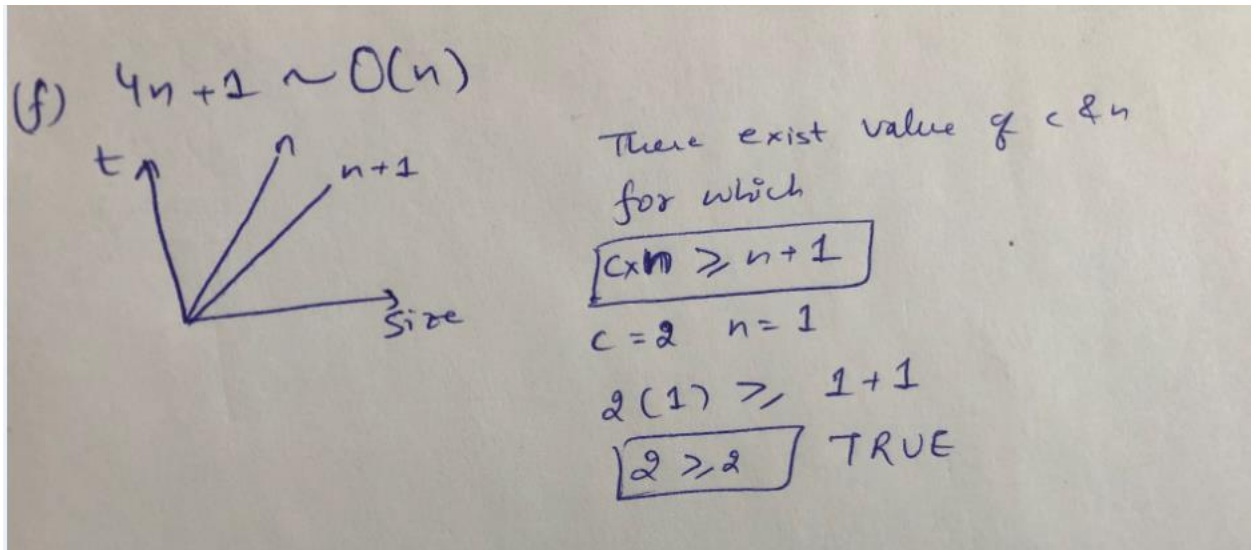 (f) 4n + 1 ~ O(n)
t
n
n + 1
Size
There exist value of c & n
for which
c×n ⩾ n + 1
c = 2 n = 1
2(1) ⩾ 1 + 1
2 ⩾ 2 TRUE